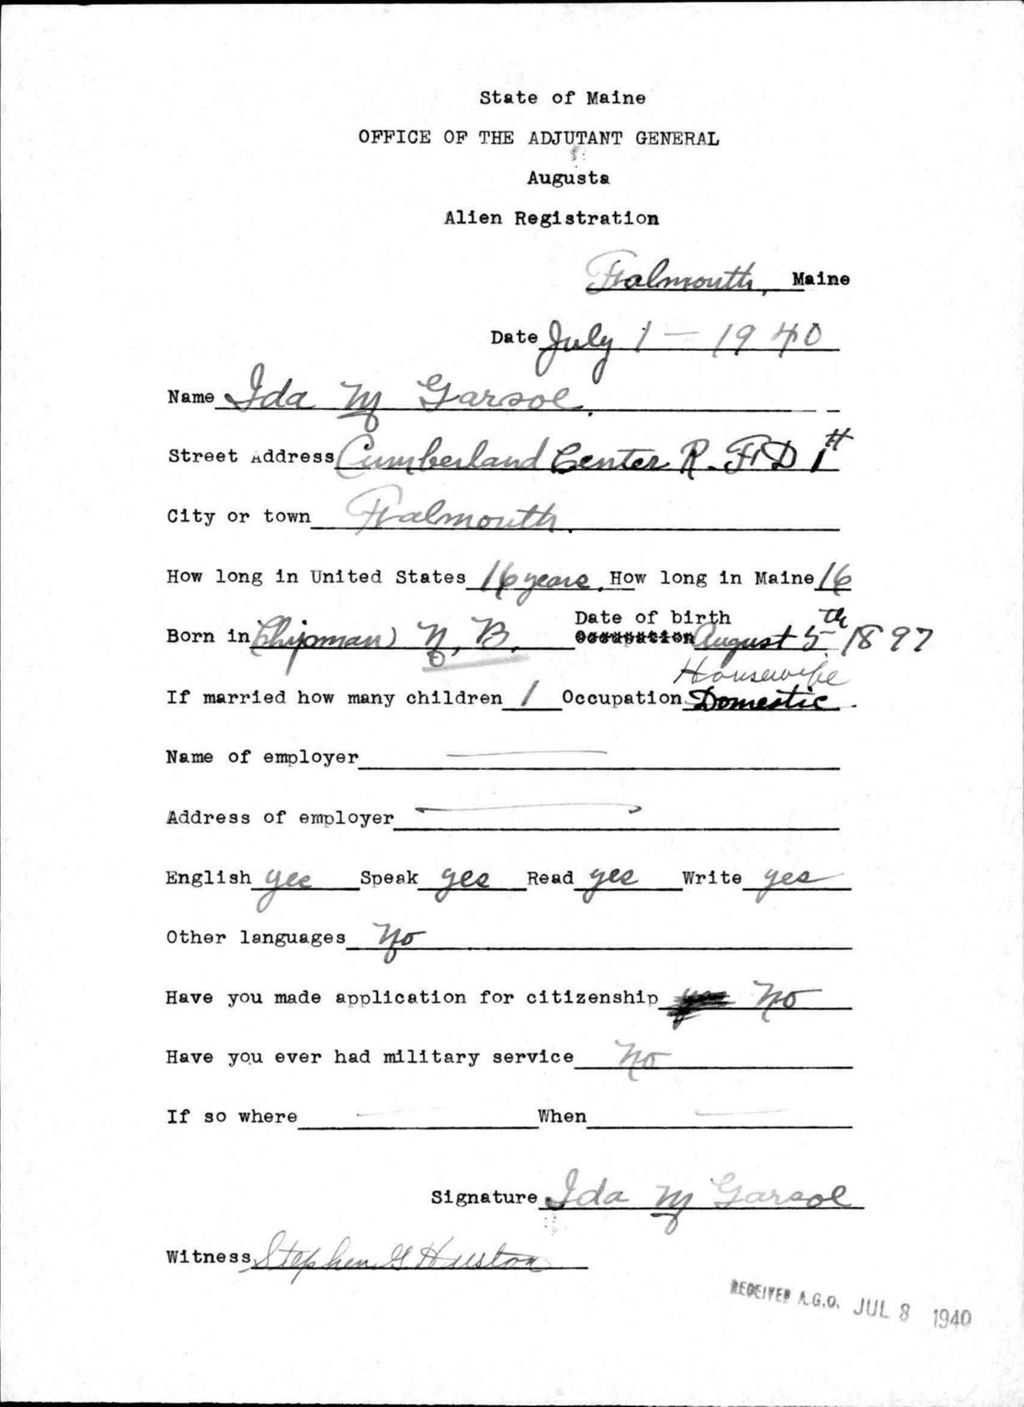 State of Maine
OFFICE OF THE ADJUTANT GENERAL
Augusta
Alien Registration
Falmouth, Maine
Date July 1 — 1940
Name Ida M Garsoe.
Street Address Cumberland Center R. F. D 1#
City or town Falmouth.
How long in United States 16 years. How long in Maine 16
Born in Chipman) N. B. Date of birth August 5th 1897
Occupation
Housewife
If married how many children 1 Occupation Domestic.
Name of employer —
Address of employer —
English yes Speak yes Read yes Write yes
Other languages No
Have you made application for citizenship yes No
Have you ever had military service No
If so where — When —
Signature Ida M Garsoe
Witness Stephen G Huston
RECEIVED A.G.O. JUL 8 1940